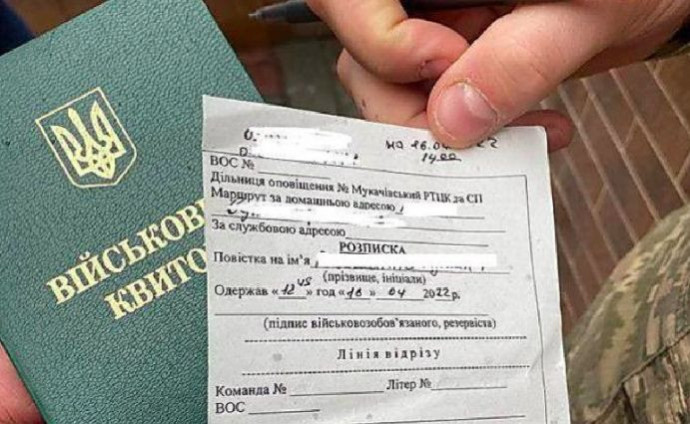 ВІЙСЬКОВ
КВИТО
на 16.04
14:00
ВОС №
Дільниця оповіщення № Мукачівський РТЦК та СП
Маршрут за домашньою адресою
За службовою адресою
РОЗПИСКА
Повістка на ім'я
(прізвище, ініціали)
Одержав «12 45» год «16» 04 2022р.
(підпис військовозобов'язаного, резервіста)
Лінія відрізу
Команда № Літер №
ВОС